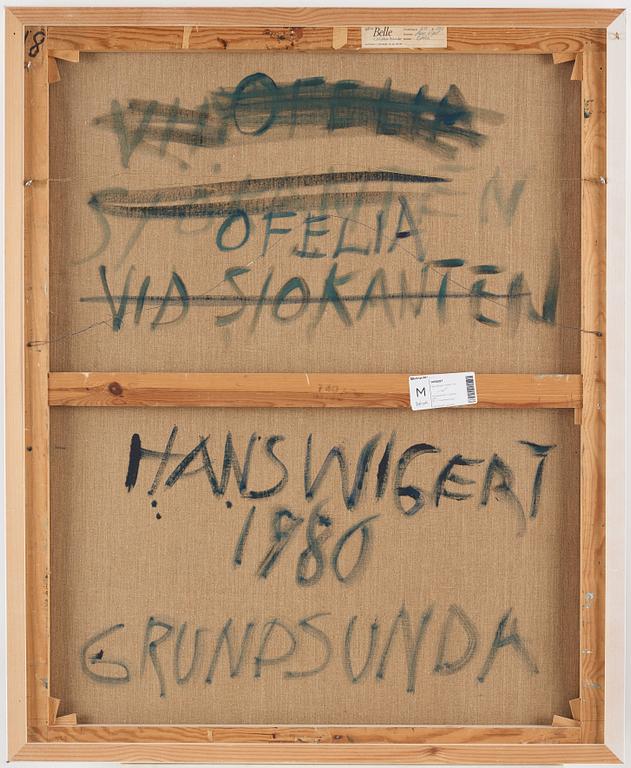 8
Belle
OFELIA
OFELIA
VID SJÖKANTEN
740
M
HANS WIGERT
1980
GRUNDSUNDA